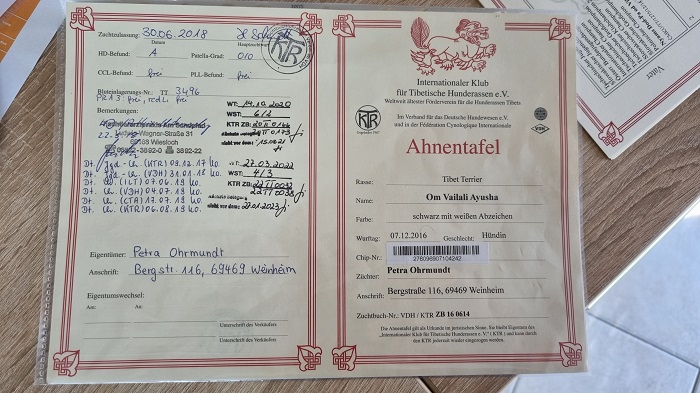 Zuchtzulassung: 30.06.2018
Datum
Hauptzuchtwart
KTR
HD-Befund: A Patella-Grad: 0/0
CCL-Befund: frei PLL-Befund: frei
Bluteinlagerungs-Nr. TT 3496
PRA 3: frei, rcd4 frei
Bemerkungen:
Ludwig-Wagner-Straße 31
69168 Wiesloch
3892-0 3892-22
Dt. Jgd-Ch. (KTR) 09.12.17 Ko.
Dt. Jgd-Ch. (VDH) 31.01.18 Ko.
Dt. Ch. (ILT) 07.06.19 Ko.
Dt. Ch. (VDH) 04.07.19 Ko.
Dt. Ch. (CTA) 17.07.19 Ko.
Dt. Ch. (KTR) 06.08.19 Ko.
WT: 14.10.2020
WST: 6/2
KTR ZB: 20 II 0166
20 II 0173
nicht vor dem: 15.08.21
WT: 27.03.2022
WST: 4/3
KTR ZB: 22 II 0032
22 II 0038
nicht vor dem: 27.01.2023
Eigentümer: Petra Ohrmundt
Anschrift: Bergstr. 116, 69469 Weinheim
Eigentumswechsel:
Am: An:
Unterschrift des Verkäufers
Unterschrift des Verkäufers
Internationaler Klub
für Tibetische Hunderassen e.V.
Weltweit ältester Förderverein für die Hunderassen Tibets
KTR
Im Verband für das Deutsche Hundewesen e.V.
und in der Fédération Cynologique Internationale
VDH
Ahnentafel
Rasse: Tibet Terrier
Name: Om Vailali Ayusha
Farbe: schwarz mit weißen Abzeichen
Wurftag: 07.12.2016 Geschlecht: Hündin
Chip-Nr.: 276096907104242
Züchter: Petra Ohrmundt
Anschrift: Bergstraße 116, 69469 Weinheim
Zuchtbuch-Nr.: VDH / KTR ZB 16 0614
Die Ahnentafel gilt als Urkunde im juristischen Sinne. Sie bleibt Eigentum des
„Internationaler Klub für Tibetische Hunderassen e. V." ( KTR ) und kann durch
den KTR jederzeit wieder eingezogen werden.
Vater